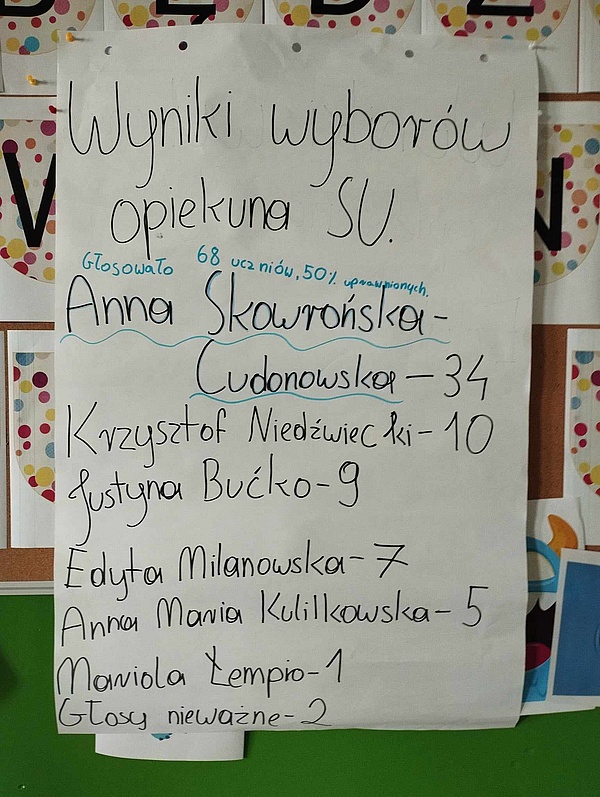 Wyniki wyborów
opiekuna SU.
Głosowało 68 uczniów, 50% uprawnionych.
Anna Skowrońska-
Cudonowska - 34
Krzysztof Niedźwiecki - 10
Justyna Bućko - 9
Edyta Milanowska - 7
Anna Maria Kulilkowska - 5
Mariola Łempio - 1
Głosy nieważne - 2